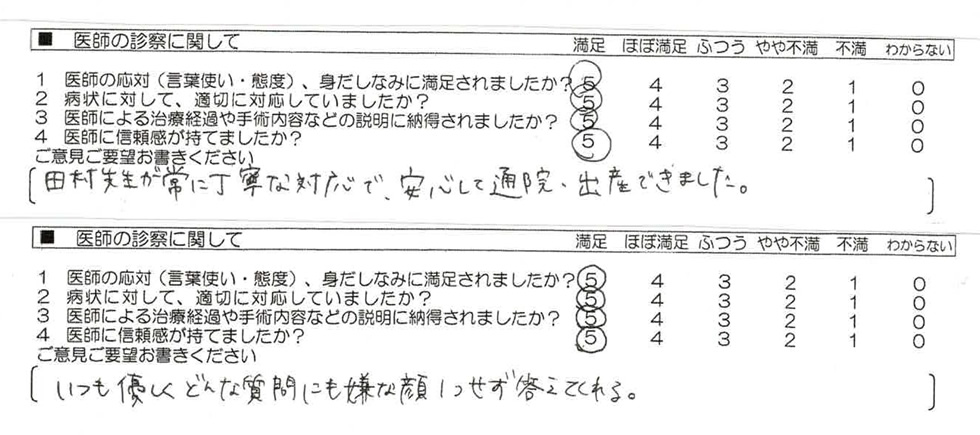 ■ 医師の診察に関して 満足 ほぼ満足 ふつう やや不満 不満 わからない
1 医師の応対（言葉使い・態度）、身だしなみに満足されましたか？ 5 4 3 2 1 0
2 病状に対して、適切に対応していましたか？ 5 4 3 2 1 0
3 医師による治療経過や手術内容などの説明に納得されましたか？ 5 4 3 2 1 0
4 医師に信頼感が持てましたか？ 5 4 3 2 1 0
ご意見ご要望お書きください
田村先生が常に丁寧な対応で、安心して通院、出産できました。
■ 医師の診察に関して 満足 ほぼ満足 ふつう やや不満 不満 わからない
1 医師の応対（言葉使い・態度）、身だしなみに満足されましたか？ 5 4 3 2 1 0
2 病状に対して、適切に対応していましたか？ 5 4 3 2 1 0
3 医師による治療経過や手術内容などの説明に納得されましたか？ 5 4 3 2 1 0
4 医師に信頼感が持てましたか？ 5 4 3 2 1 0
ご意見ご要望お書きください
いつも優しくどんな質問にも嫌な顔1つせず答えてくれる。